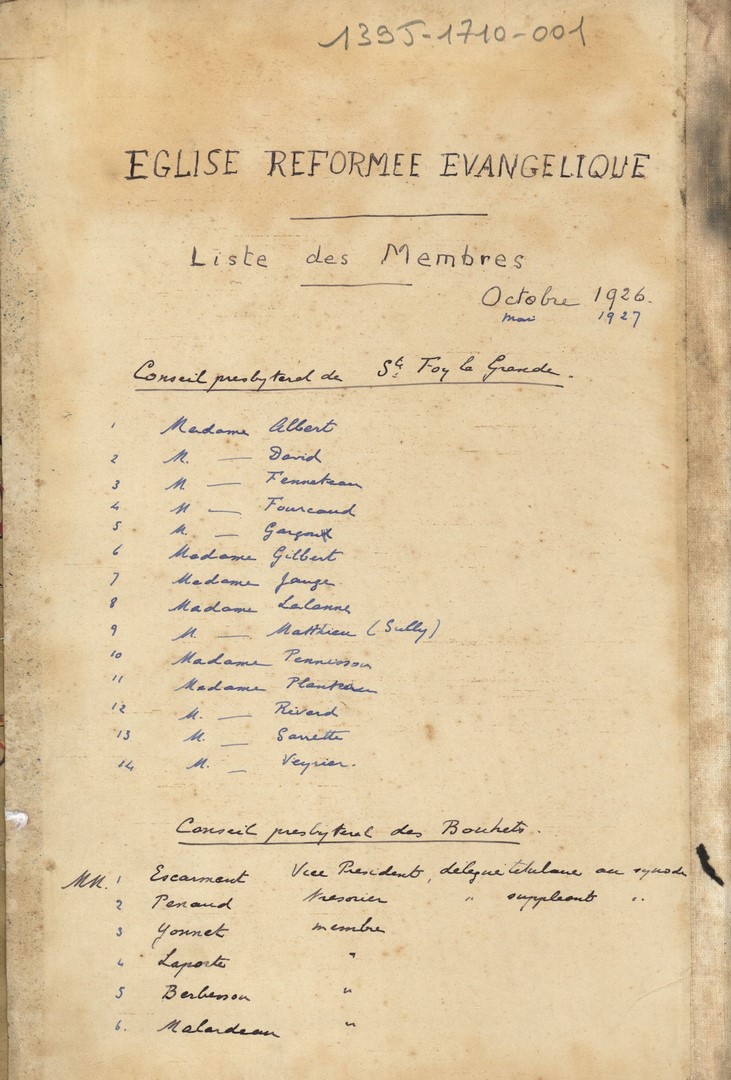 1395-1710-001
EGLISE REFORMEE EVANGELIQUE
Liste des Membres
Octobre 1926.
mai 1927
Conseil presbyteral de Ste Foy la Grande.
1 Madame Albert
2 M. — David
3 M — Fenneteau
4 M — Fourcaud
5 M. —
6 Madame Gilbert
7 Madame Jauge
8 Madame Lalanne
9 M — Matthieu (Sully)
10 Madame Pennisson
11 Madame Planteau
12 M. — Rivard
13 M. — Sarrette
14 M. — Veyrier.
Conseil presbyteral des Bouhets.
MM. 1 Escarment Vice President, délégué titulaire au synode
2 Penaud Tresorier " suppleant "
3 Yonnet membre
4 Laporte "
5 Berbesson "
6. Malardeau "